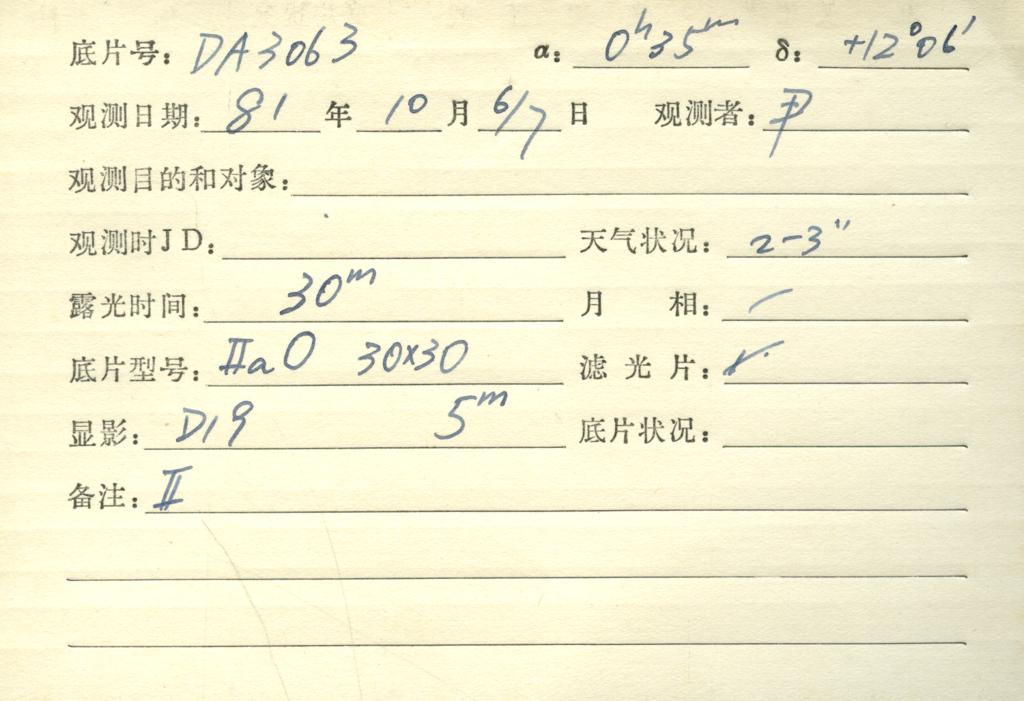 底片号: DA3063 α: 0ʰ35ᵐ δ: +12°06′
观测日期: 81 年 10 月 6/7 日 观测者:
观测目的和对象:
观测时JD: 天气状况: 2-3″
露光时间: 30ᵐ 月 相: /
底片型号: IIaO 30×30 滤光片:
显影: D19 5ᵐ 底片状况:
备注: II